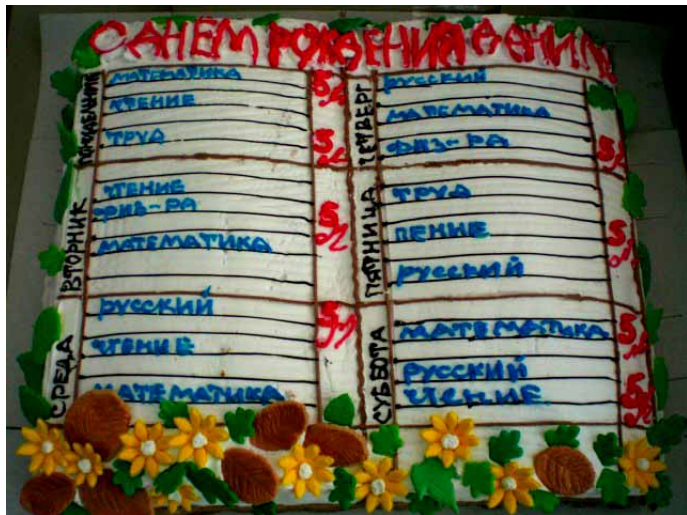 С ДНЁМ РОЖДЕНИЯ ДЕНИЛ
ПОНЕДЕЛЬНИК
МАТЕМАТИКА 5
ЧТЕНИЕ
ТРУД 5
ВТОРНИК
ЧТЕНИЕ
ФИЗ-РА 5
МАТЕМАТИКА
СРЕДА
РУССКИЙ 5
ЧТЕНИЕ
МАТЕМАТИКА
ЧЕТВЕРГ
РУССКИЙ
МАТЕМАТИКА
ФИЗ-РА 5
ПЯТНИЦА
ТРУД
ПЕНИЕ 5
РУССКИЙ
СУББОТА
МАТЕМАТИКА 5
РУССКИЙ
ЧТЕНИЕ 5